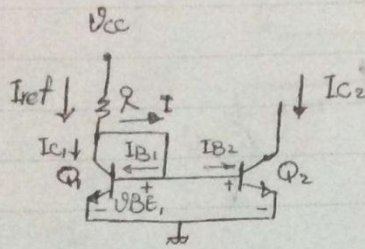 VCC
Iref
R
I
IC2
IC1
IB1
IB2
Q1
+
+
Q2
-
VBE1
-